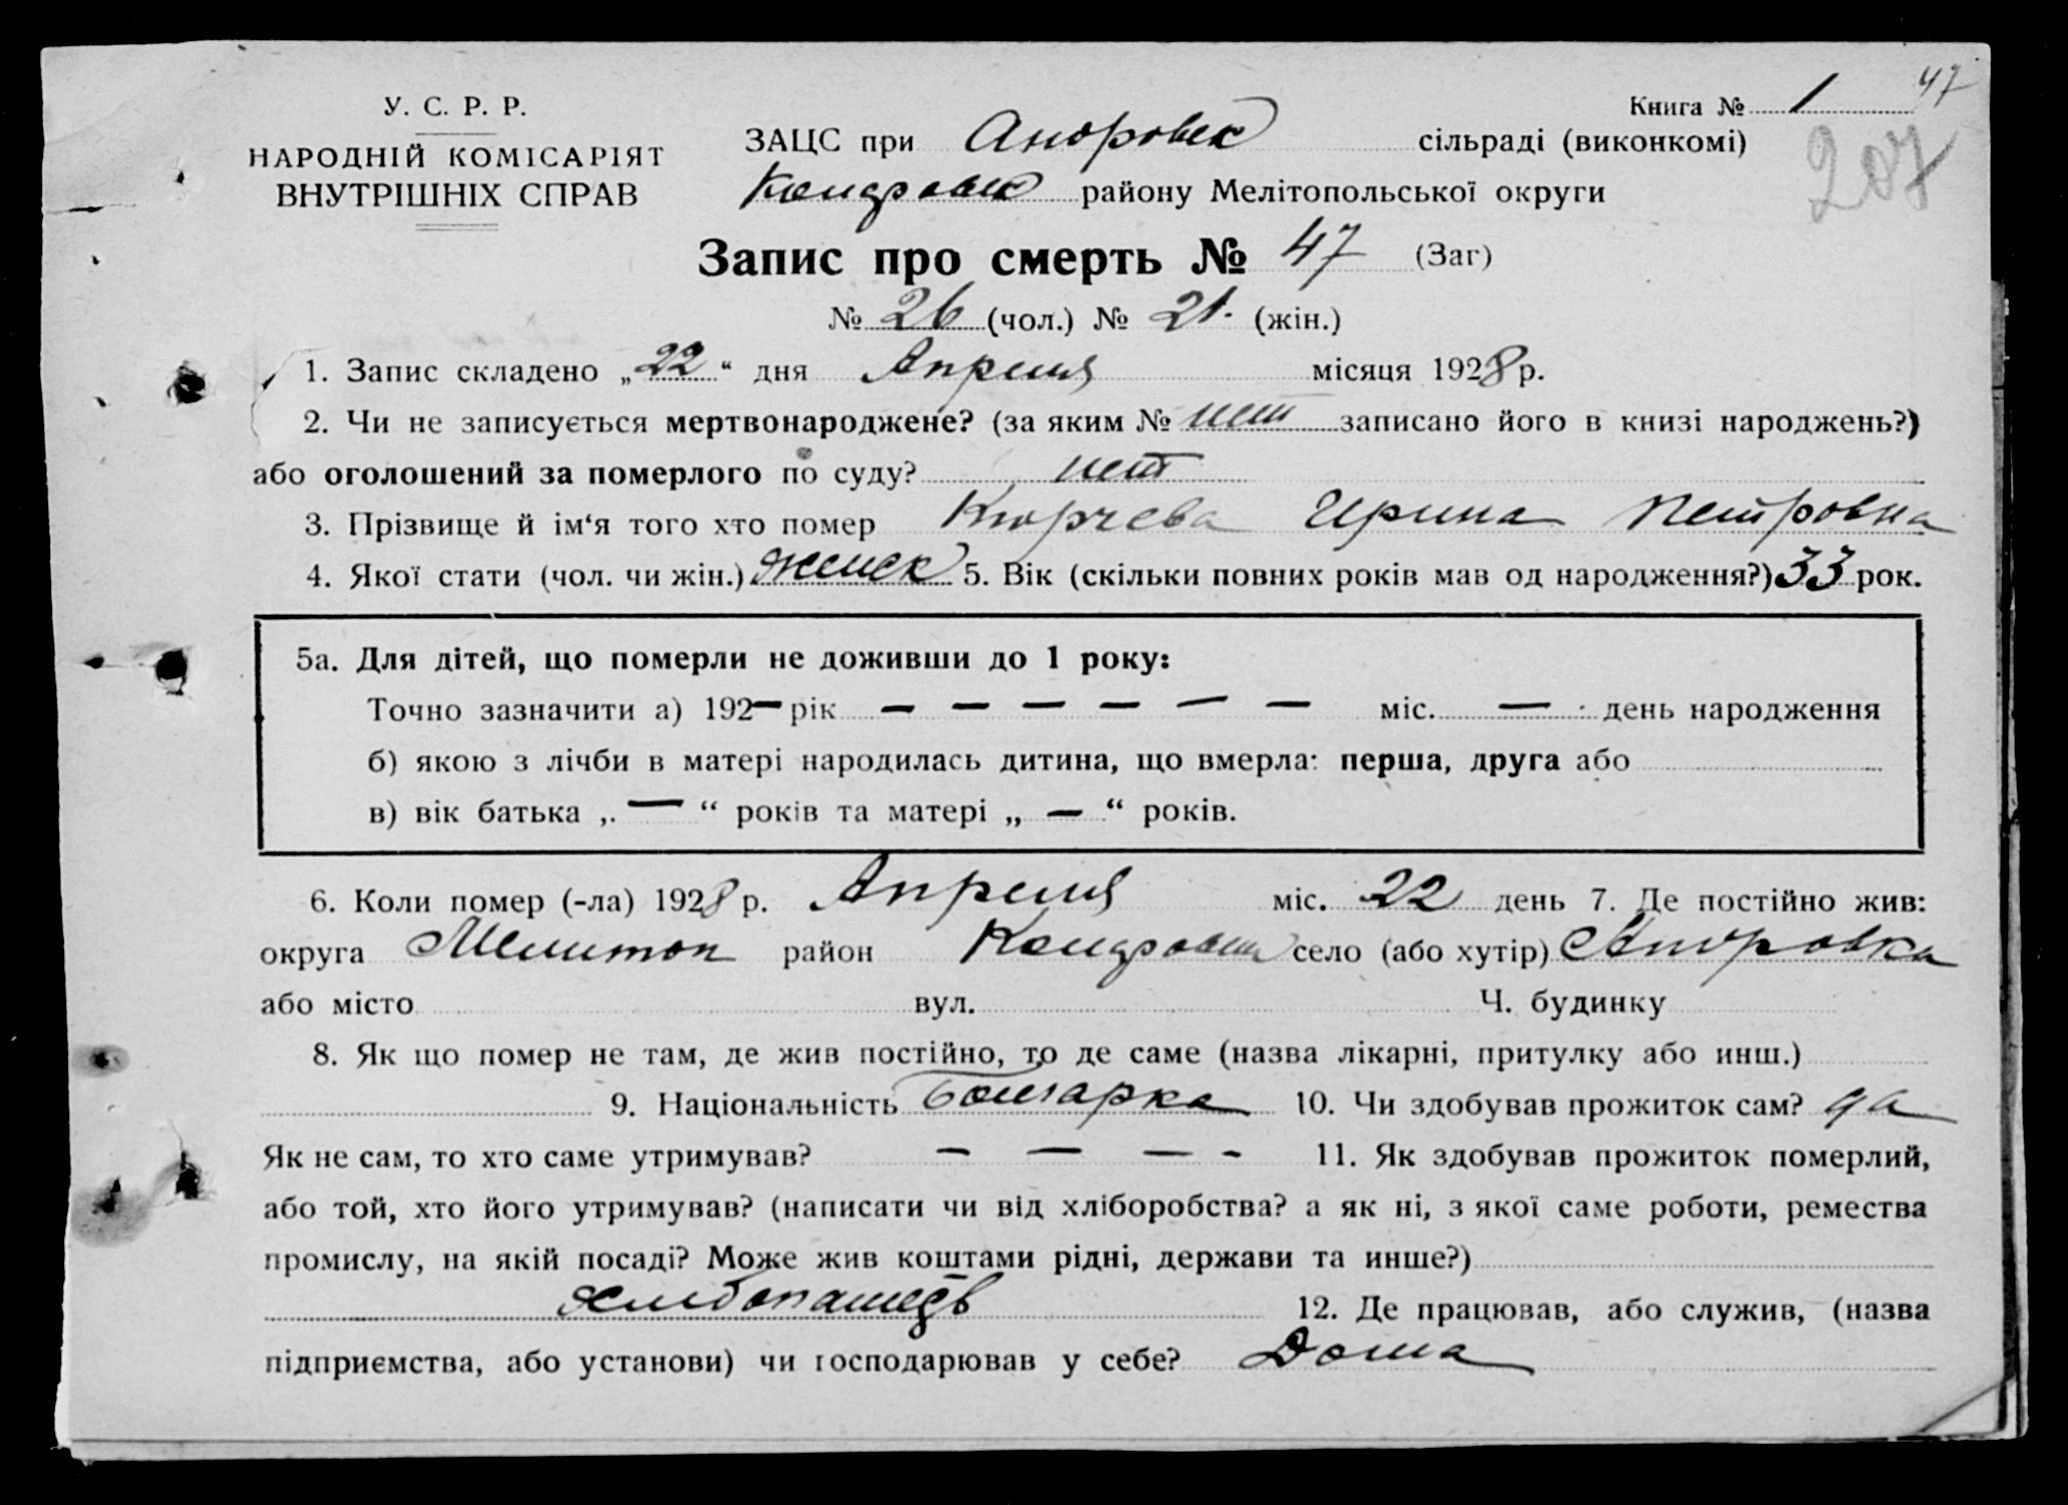 47
У. С. Р. Р.
Книга № 1
НАРОДНІЙ КОМІСАРІЯТ
ВНУТРІШНІХ СПРАВ
ЗАЦС при Аноровск сільраді (виконкомі)
207
района Мелітопольської округи
Запис про смерть № 47 (Заг)
№ 26 (чол.) № 21. (жін.)
1. Запис складено „22“ дня Апреля місяця 1928 р.
2. Чи не записується мертвонароджене? (за яким № нет записано його в книзі народжень?)
або оголошений за померлого по суду? нет
3. Прізвище й ім‘я того хто помер Кюрчева Ирина Петровна
4. Якої стати (чол. чи жін.) женск 5. Вік (скільки повних років мав од народження?) 33 рок.
5а. Для дітей, що померли не доживши до 1 року:
Точно зазначити а) 192— рік — — — — — — міс. — день народження
б) якою з лічби в матері народилась дитина, що вмерла: перша, друга або
в) вік батька „ — “ років та матері „ — “ років.
6. Коли помер (-ла) 1928 р. Апреля міс. 22 день 7. Де постійно жив:
округа Мелитоп район село (або хутір) Аноровка
або місто вул. Ч. будинку
8. Як що помер не там, де жив постійно, то де саме (назва лікарні, притулку або инш.)
9. Національність Болгарка 10. Чи здобував прожиток сам? да
Як не сам, то хто саме утримував? — — — - 11. Як здобував прожиток померлий,
або той, хто його утримував? (написати чи від хліборобства? а як ні, з якої саме роботи, ремества
промислу, на якій посаді? Може жив коштами рідні, держави та инше?)
хлебопашедв 12. Де працював, або служив, (назва
підприємства, або установи) чи господарював у себе? Дома